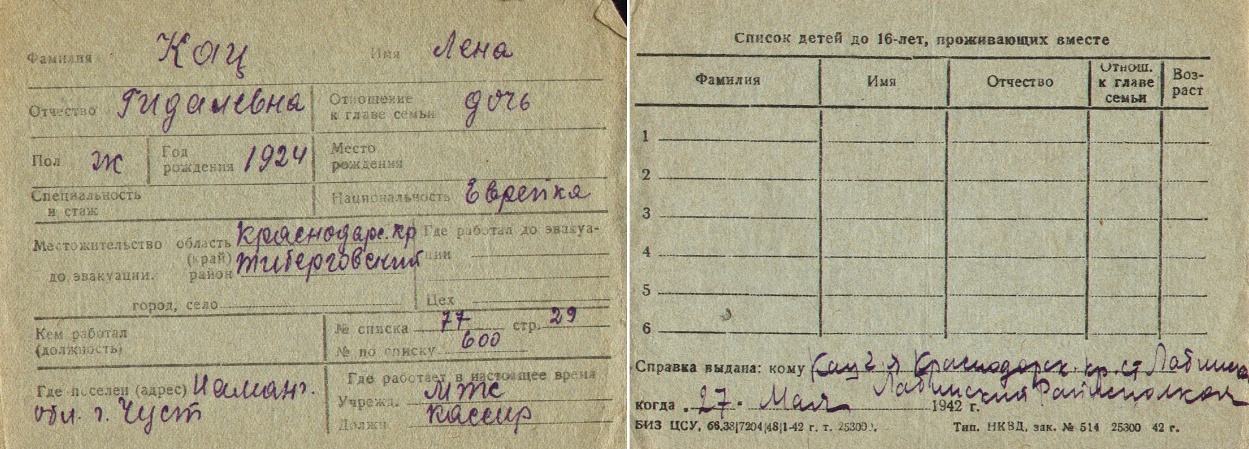 Фамилия Кац Имя Лена
Отчество Гидалевна Отношение к главе семьи дочь
Пол ж Год рождения 1924 Место рождения
Специальность и стаж Национальность Еврейка
Местожительство до эвакуации. область (край) Краснодарс. кр
район Тиберговский
город, село
Где работал до эвакуации
Цех
Кем работал (должность)
№ списка 77 стр. 29
№ по списку 600
Где поселен (адрес) Наманг.
обл. г. Чуст
Где работает в настоящее время
Учрежд. МТС
Должн. Кассир
Список детей до 16-лет, проживающих вместе
Фамилия Имя Отчество Отнош. к главе семьи Возраст
1
2
3
4
5
6
Справка выдана: кому Кац Краснодарск. кр. ст.
Лабинский Райисполком
когда 27. Мая 1942 г.
БИЗ ЦСУ, 66,38|7204|48|1-42 г. т. 25300. Тип. НКВД, зак. № 514 25300 42 г.